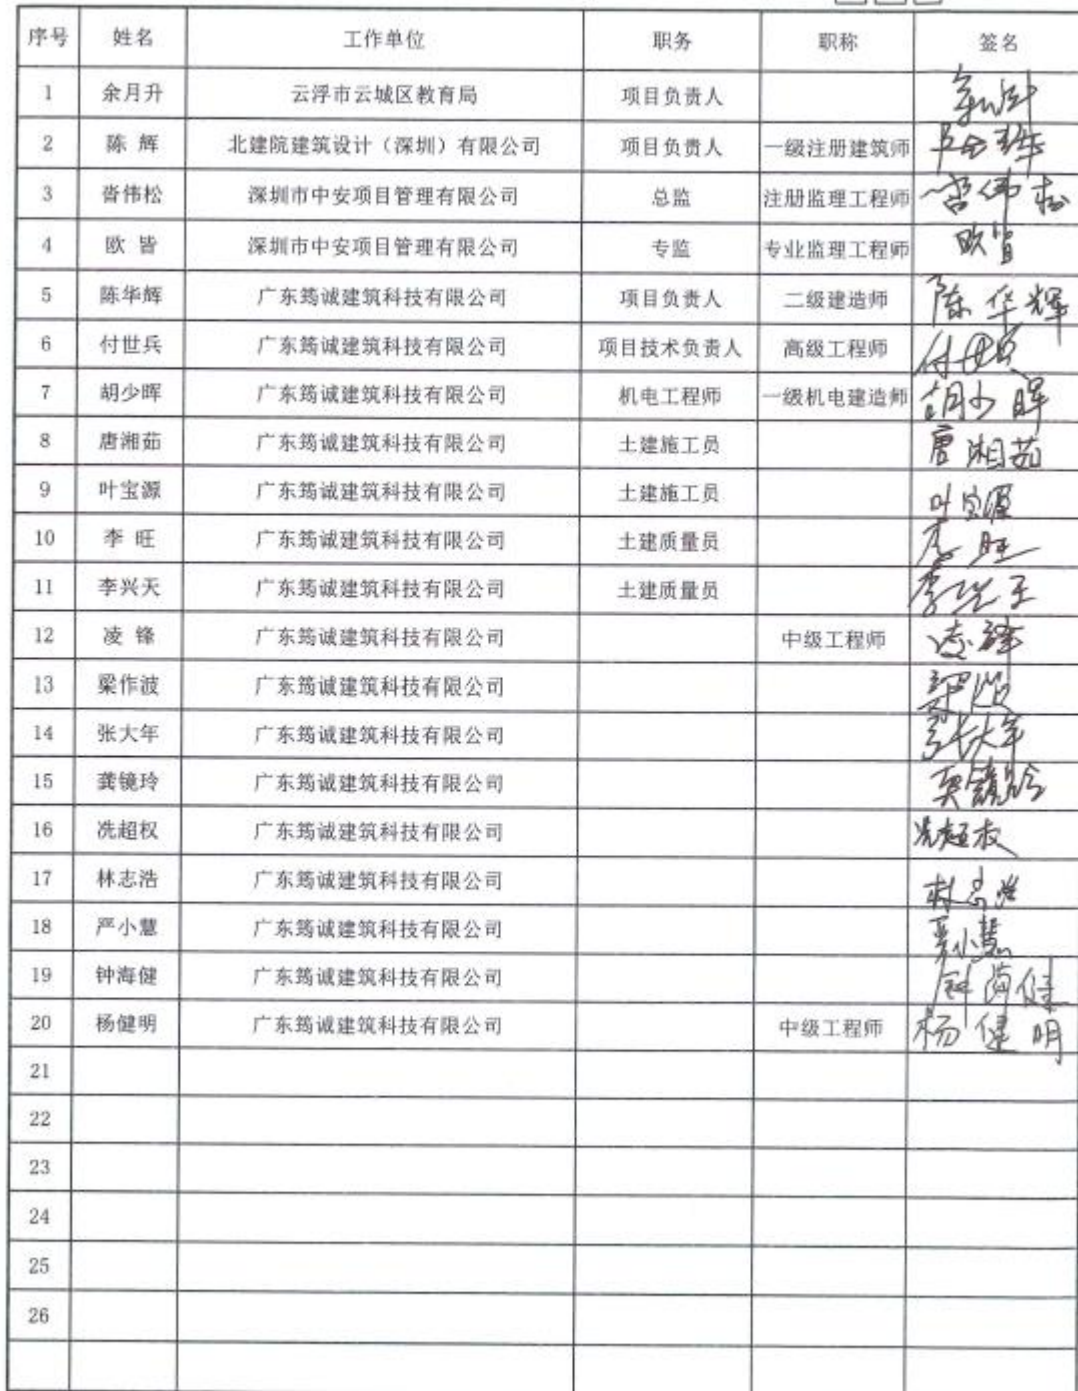 序号 姓名 工作单位 职务 职称 签名
1 余月升 云浮市云城区教育局 项目负责人
2 陈 辉 北建院建筑设计（深圳）有限公司 项目负责人 一级注册建筑师
3 昝伟松 深圳市中安项目管理有限公司 总监 注册监理工程师
4 欧 皆 深圳市中安项目管理有限公司 专监 专业监理工程师 欧皆
5 陈华辉 广东筠诚建筑科技有限公司 项目负责人 二级建造师 陈华辉
6 付世兵 广东筠诚建筑科技有限公司 项目技术负责人 高级工程师 付世兵
7 胡少晖 广东筠诚建筑科技有限公司 机电工程师 一级机电建造师 胡少晖
8 唐湘茹 广东筠诚建筑科技有限公司 土建施工员 唐湘茹
9 叶宝源 广东筠诚建筑科技有限公司 土建施工员 叶宝源
10 李 旺 广东筠诚建筑科技有限公司 土建质量员 李旺
11 李兴天 广东筠诚建筑科技有限公司 土建质量员
12 凌 锋 广东筠诚建筑科技有限公司 中级工程师 凌锋
13 梁作波 广东筠诚建筑科技有限公司
14 张大年 广东筠诚建筑科技有限公司 张大年
15 龚镜玲 广东筠诚建筑科技有限公司
16 冼超权 广东筠诚建筑科技有限公司 冼超权
17 林志浩 广东筠诚建筑科技有限公司 林志浩
18 严小慧 广东筠诚建筑科技有限公司 严小慧
19 钟海健 广东筠诚建筑科技有限公司 钟海健
20 杨健明 广东筠诚建筑科技有限公司 中级工程师 杨健明
21
22
23
24
25
26